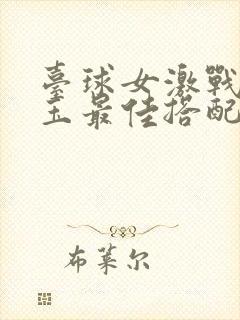 臺球女激戰
王最佳搭配
布萊尔